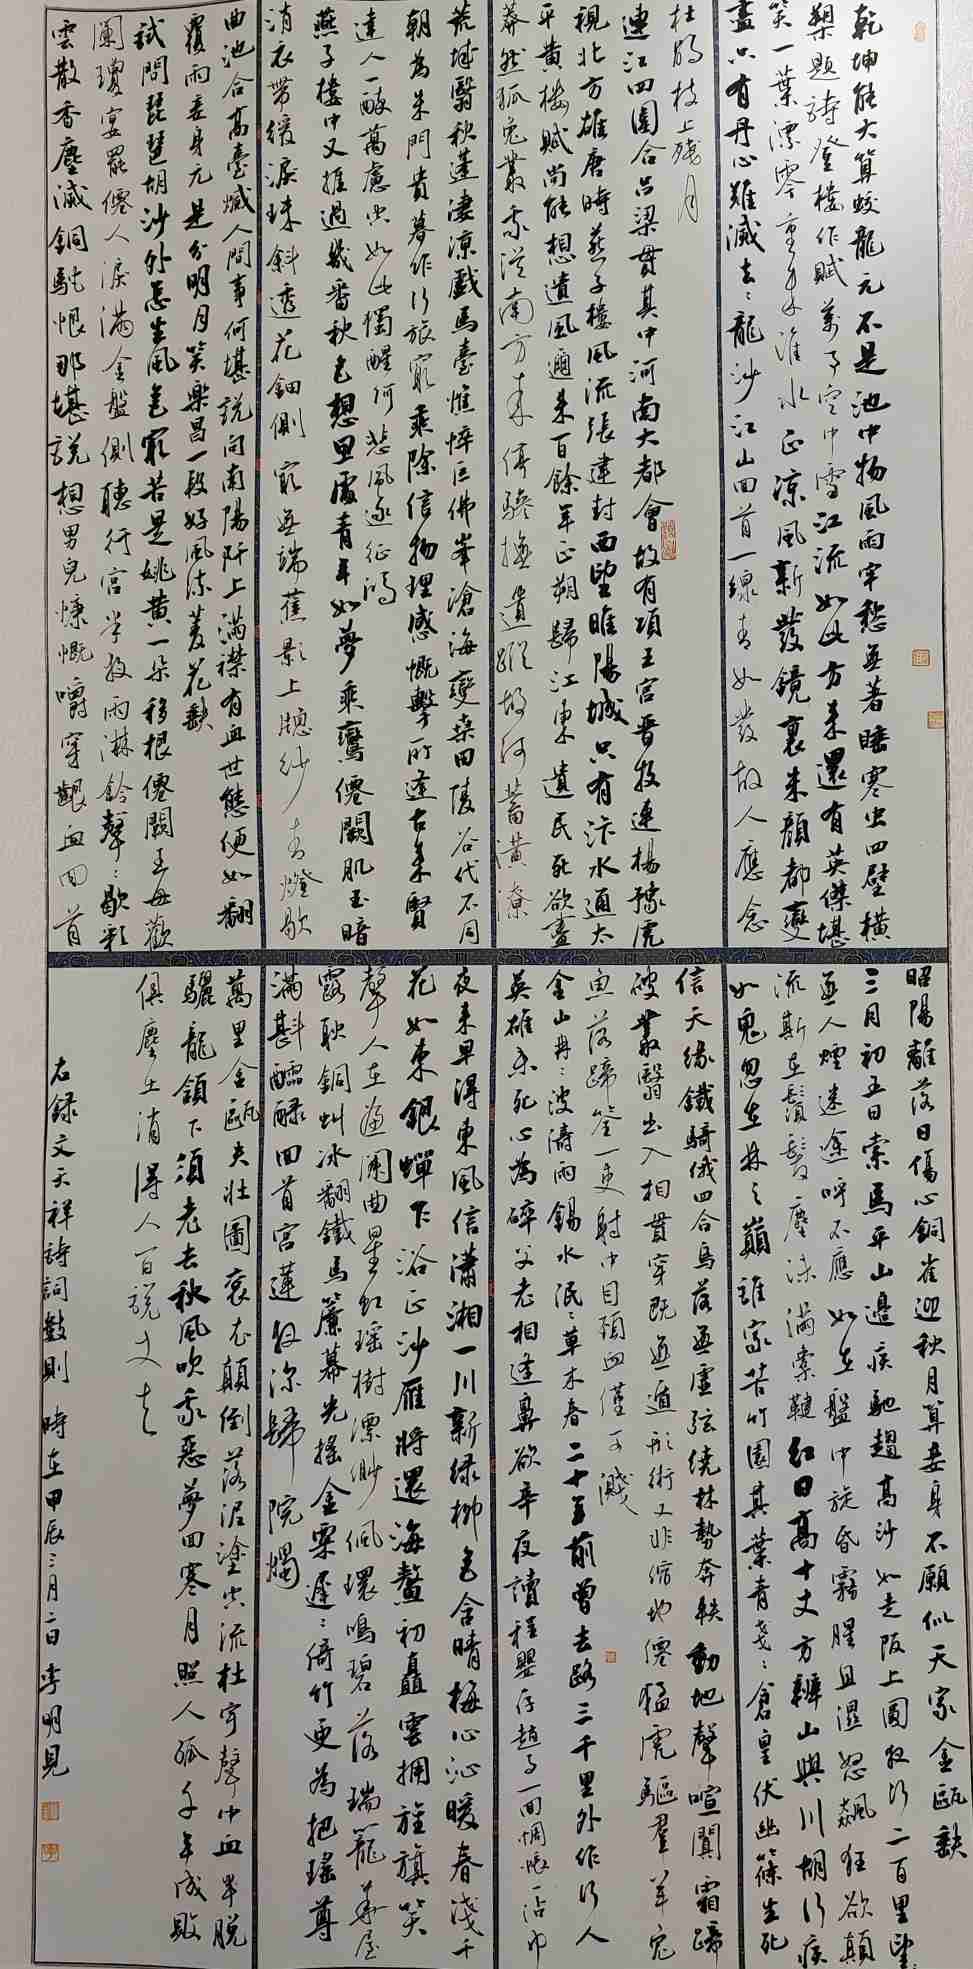 乾坤能大算蛟龍元不是池中物風雨牢愁無著處寒虫四壁橫
槊題詩登樓作賦萬事空中雪江流如此方来還有英傑堪
笑一葉漂零重来淮水正凉風新發鏡裏朱顏都變
盡只有丹心難滅去去龍沙江山回首一線青如髮故人應念
杜鵑枝上殘月
連江四圍合呂梁貫其中河南大都會故有項王宮晋投連楊豫虎
視北方雄唐時燕子樓風流張建封西望睢陽城只有汴水通大
平黄樓賦尚能想遺風邇来百餘年正朔歸江東遺民死欲盡
莽然狐兔叢我從南方来停驂撫遺蹤故河蓄潢潦
荒城翳秋蓬凄凉戲馬臺憔悴巨佛峯滄海變桑田陵谷代不同
朝為朱門貴暮作行旅窮乘除信物理感慨擊所逢古来賢
達人一酔萬慮空如此獨醒何悲風逐征鴻
燕子樓中又捱過幾番秋色想思處青年如夢乘鸞僊闕肌玉暗
消衣帶緩淚珠斜透花鈿側最無端蕉影上牕紗青燈歇
曲池合高臺滅人間事何堪說向南陽阡上滿襟有血世態便如翻
覆雨妾身元是分明月笑樂昌一段好風流菱花缺
試問琵琶胡沙外怎生風色最苦是姚黄一朵移根僊闕王母歡
闌瓊宴罷僊人淚滿金盤側聽行宮半夜雨淋鈴聲聲歇彩
雲散香塵滅銅駝恨那堪說想男兒慷慨嚼穿齦血回首
昭陽離落日傷心銅雀迎秋月算妾身不願似天家金甌缺
三月初五日索馬平山邊疾馳趨高沙如走阪上圓夜行二百里望
無人煙迷途呼不應如在盤中旋昏霧腥且濕怒飆狂欲顛
流澌在鬚髮塵沫滿橐鞬紅日高十丈方辨山與川胡行疾
如鬼忽在林之巔誰家苦竹園其葉青戔戔倉皇伏幽篠生死
信天緣鐵騎俄四合鳥落無虛弦繞林勢奔軼動地聲喧闐霜蹄
破叢翳出入相貫穿既無遁形術又非縮地僊猛虎驅羣羊兔
魚落蹄筌一吏射中目頸血僅可濺
金山冉冉波濤雨錫水泯泯草木春二十年前曾去路三千里外作行人
英雄未死心為碎父老相逢鼻欲辛夜讀程嬰存趙事一回惆悵一沾巾
夜来早得東風信瀟湘一川新绿柳色含晴梅心沁暖春淺千
花如束銀蟬下浴正沙雁將還海鰲初矗雲擁旌旗笑
聲人在画闌曲星虹瑶樹漂緲佩環鳴碧落瑞籠華屋
露耿銅虯冰翻鐵馬簾幕光摇金粟遲遲倚竹更為把瑶尊
滿斟醽醁回首宮蓮夜深歸院燭
萬里金甌失壮圖衮衣顛倒落泥塗空流杜宇聲中血半脱
驪龍領下須老去秋風吹我惡夢回寒月照人孤千年成敗
俱塵土消得人百說丈夫
右録文天祥詩詞數則時在甲辰三月二日李明見